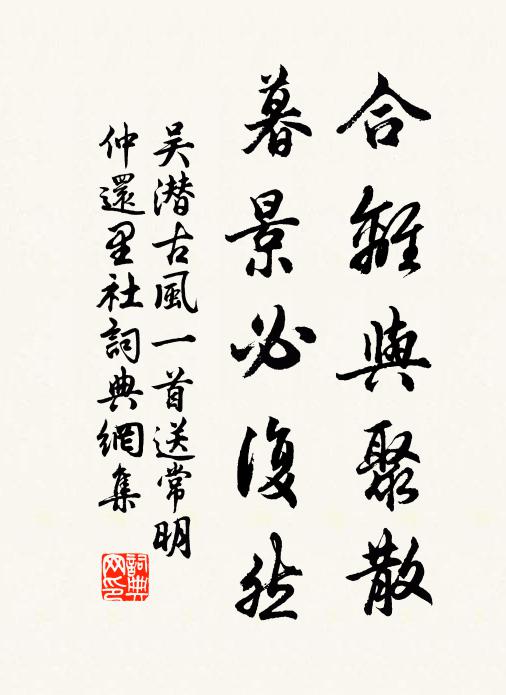 合離與聚散
暮景必復然
吳潛古風一首送常明
仲還里社詞典網集
詞典網印